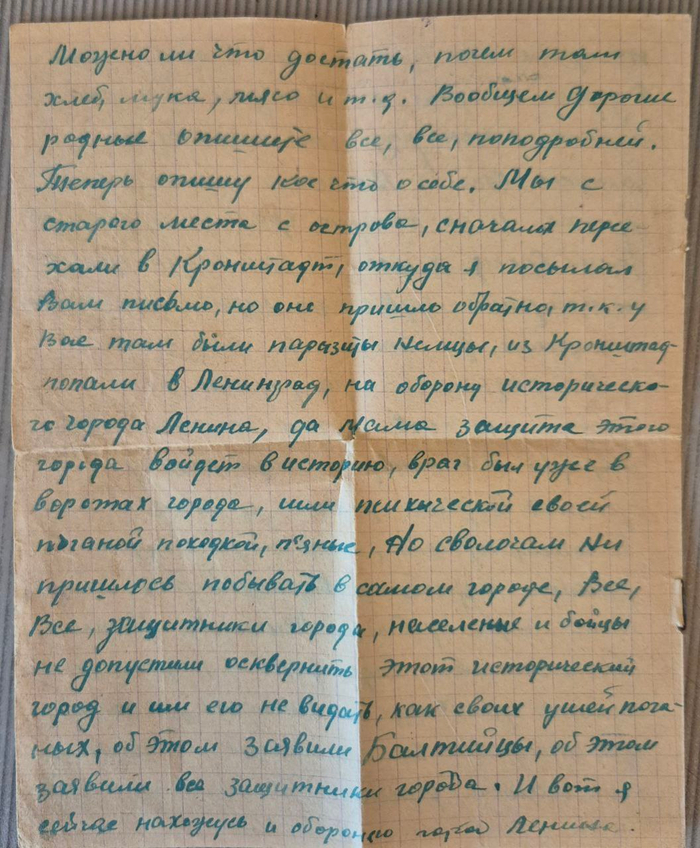 Можно ли что достать, почем там
хлеб, мука, мясо и т.д. Вообщем дорогие
родные опишите все, все, поподробней.
Теперь опишу кое что о себе. Мы с
старого места с острова, сначала пере-
хали в Кронштадт, откуда я посылал
Вам письмо, но оно пришло обратно, т.к. у
Вас там были паразиты немцы, из Кронштад-
попали в Ленинград, на оборону историческо-
го города Ленина, да мама защита этого
города войдет в историю, враг был уже в
воротах города, шли психической своей
поганой походкой, пьяные, Но сволочам ни
пришлось побывать в самом городе, Все,
Все, защитники города, население и бойцы
не допустили осквернить этот исторический
город и им его не видать, как своих ушей пога-
ных, об этом заявили Балтийцы, об этом
заявили все защитники города. И вот я
сейчас нахожусь и обороняю город Ленина.